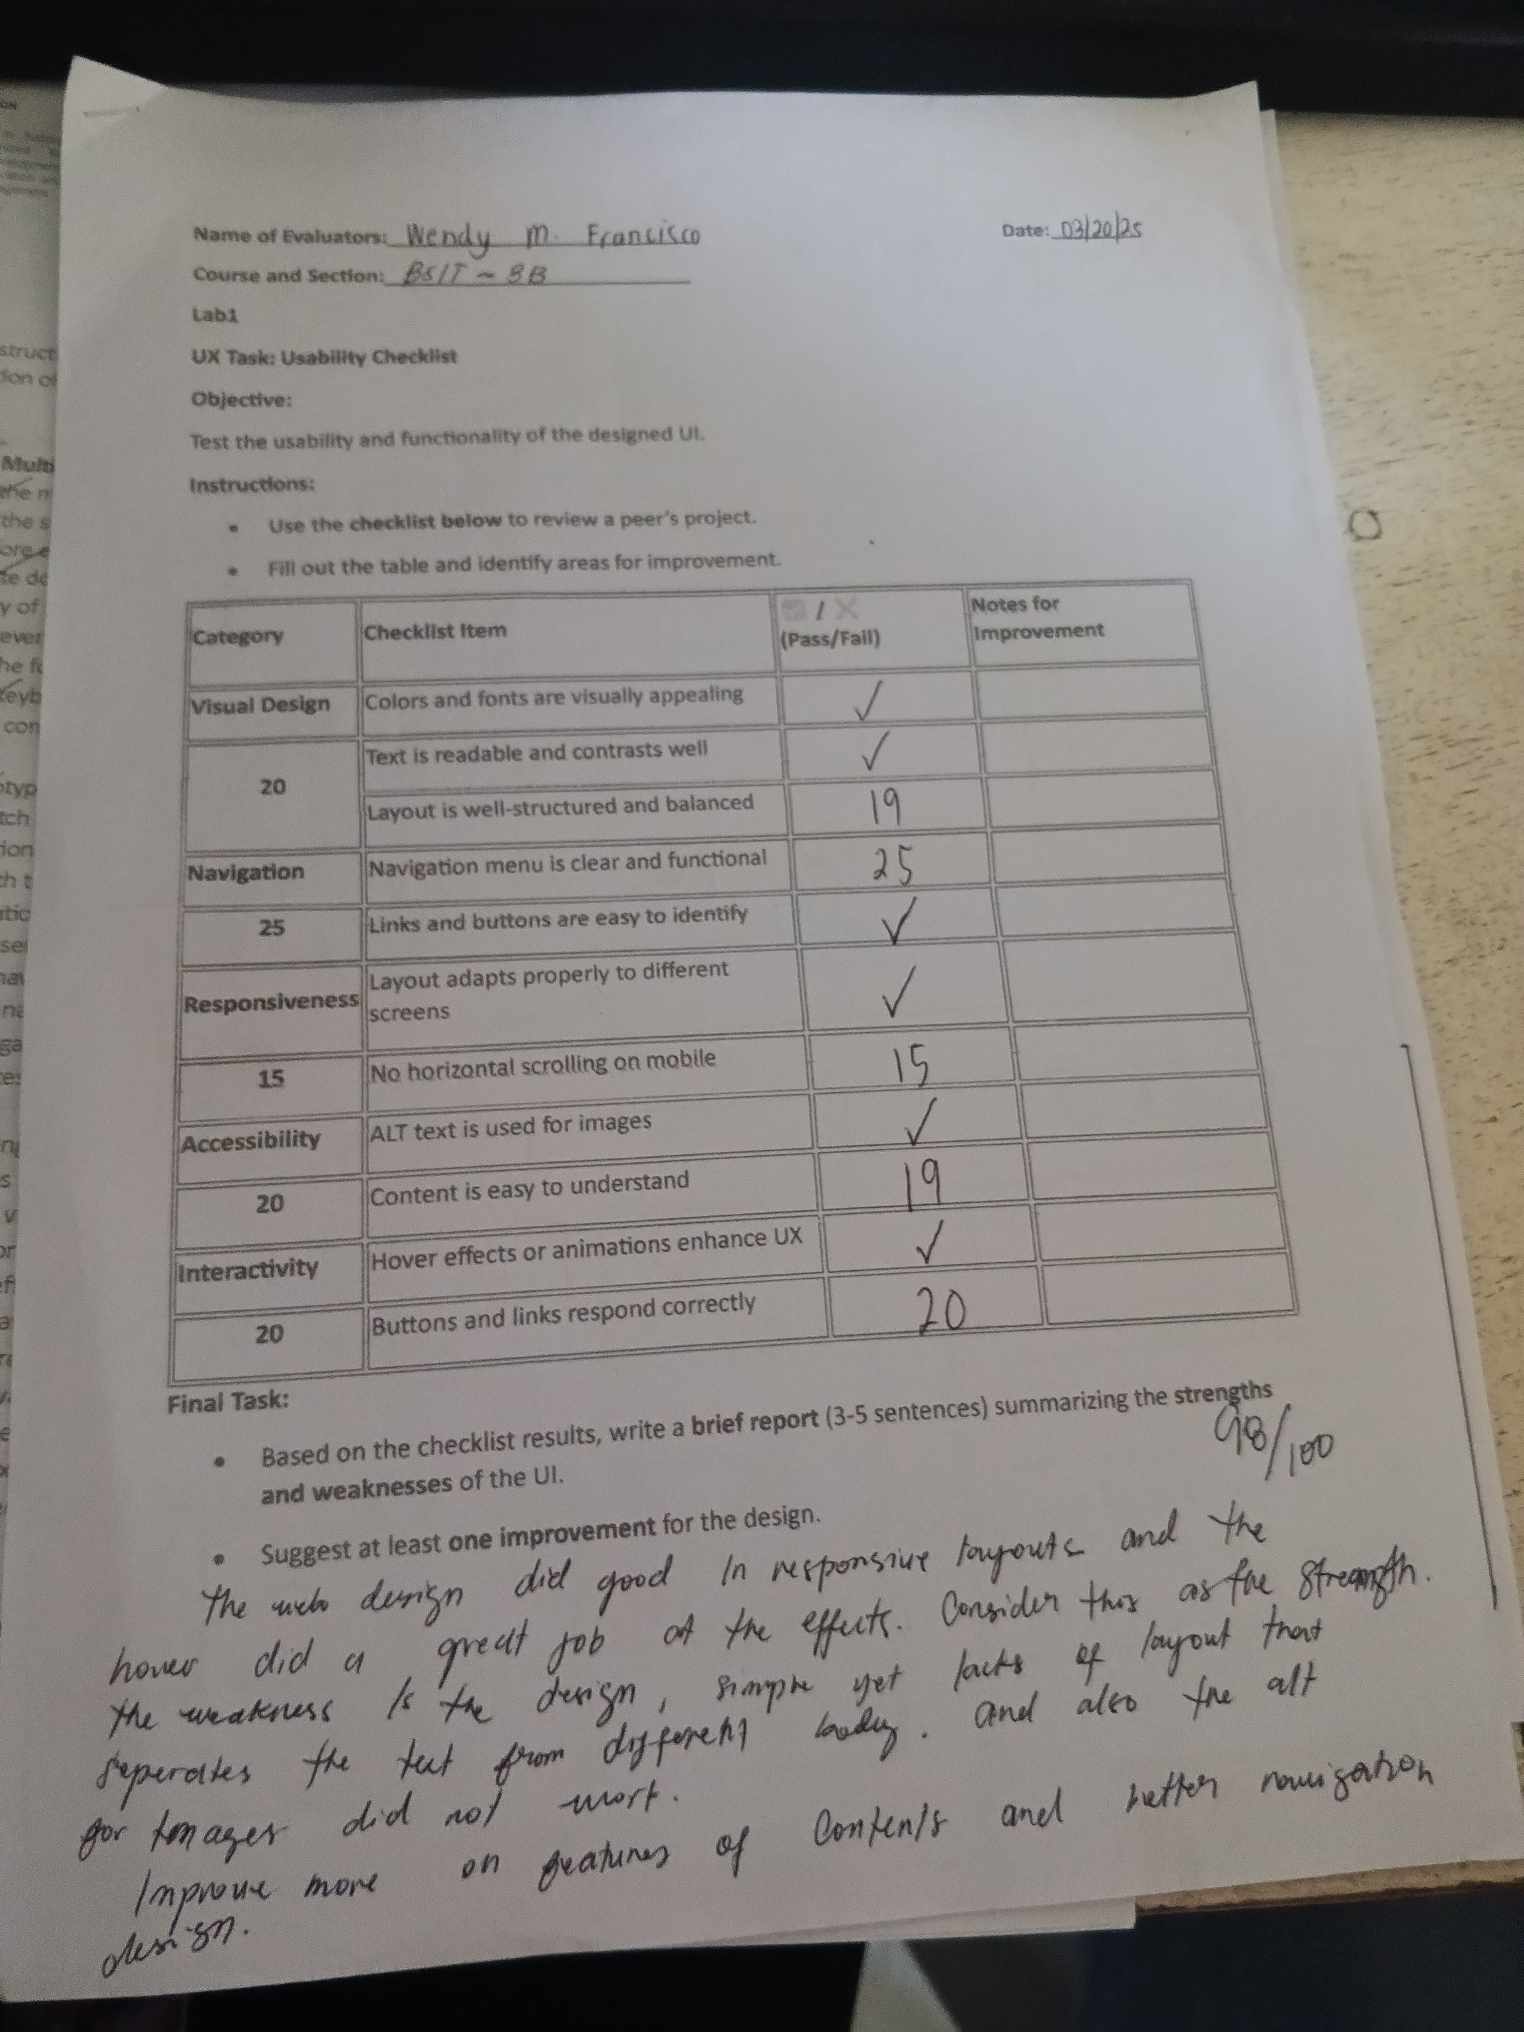 Name of Evaluators: Wendy M. Francisco
Date: 03/20/25
Course and Section: BSIT ~ 3B
Lab1
UX Task: Usability Checklist
Objective:
Test the usability and functionality of the designed UI.
Instructions:
• Use the checklist below to review a peer's project.
• Fill out the table and identify areas for improvement.
Category Checklist Item ✅ / ❌ (Pass/Fail) Notes for Improvement
Visual Design Colors and fonts are visually appealing ✓
20 Text is readable and contrasts well ✓
Layout is well-structured and balanced 19
Navigation Navigation menu is clear and functional 25
25 Links and buttons are easy to identify ✓
Responsiveness Layout adapts properly to different screens ✓
15 No horizontal scrolling on mobile 15
Accessibility ALT text is used for images ✓
20 Content is easy to understand 19
Interactivity Hover effects or animations enhance UX ✓
20 Buttons and links respond correctly 20
Final Task:
• Based on the checklist results, write a brief report (3-5 sentences) summarizing the strengths
and weaknesses of the UI.
98/100
• Suggest at least one improvement for the design.
The web design did good In responsive layouts and the
hover did a great job at the effects. Consider this as the Strength.
The weakness Is the design, simple yet lacks of layout that
seperates the text from different body. and also the alt
for Images did not work.
Improve more on features of Contents and better navigation
design.